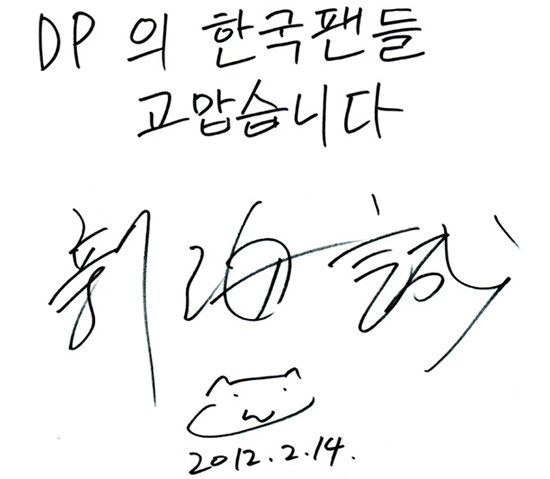 DP 의 한국팬들
고맙습니다
2012.2.14.